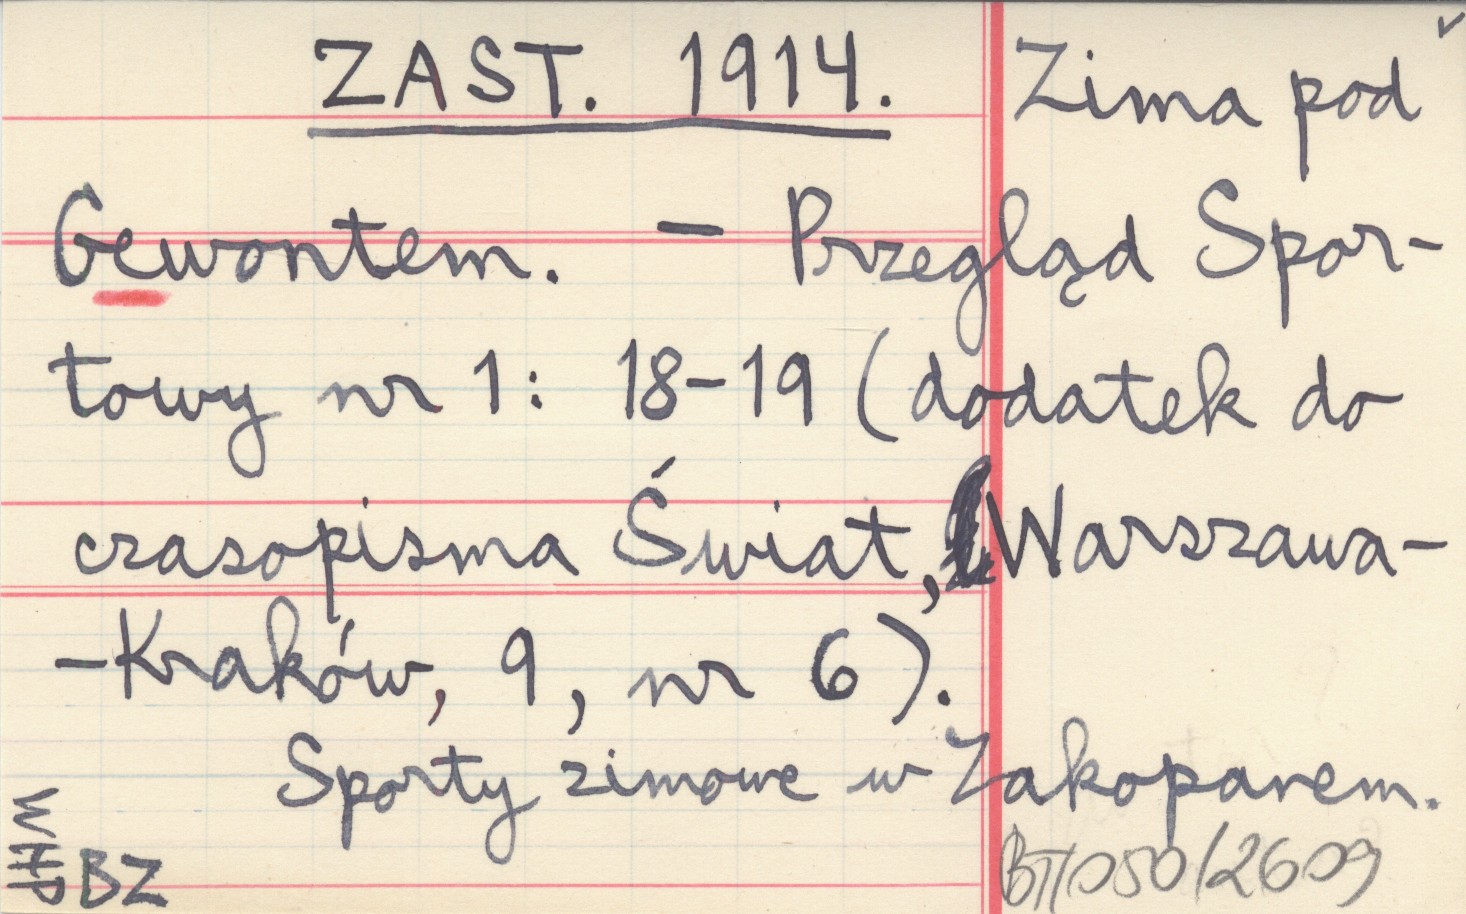 ZAST. 1914. Zima pod
Gewontem. – Przegląd Spor-
towy nr 1: 18-19 (dodatek do
czasopisma Świat, Warszawa-
-Kraków, 9, nr 6).
Sporty zimowe w Zakopanem.
WHP
BZ BTI/050/2609